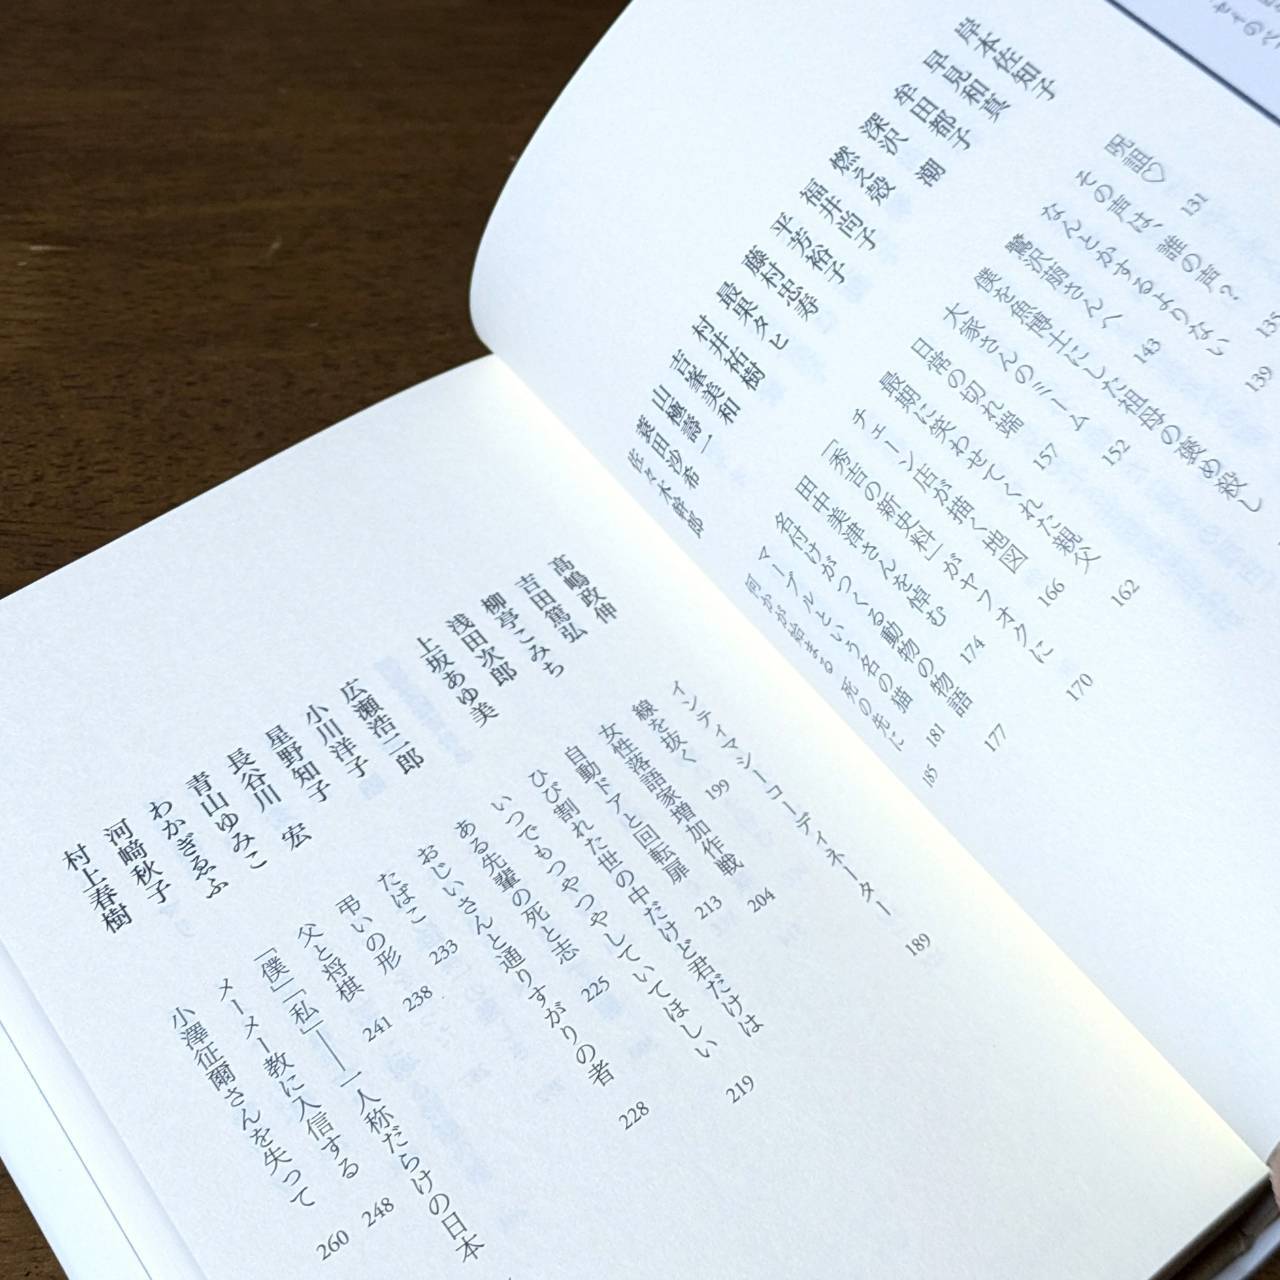 岸本佐知子 呪詛♡ 131
早見和真 その声は、誰の声? 135
牟田都子 なんとかするよりない 139
深沢 潮 鷺沢萠さんへ 143
燃え殻 僕を魚博士にした祖母の褒め殺し
福井尚子 大家さんのミーム 152
平芳裕子 日常の切れ端 157
藤村忠寿 最期に笑わせてくれた親父 162
最果タヒ チェーン店が描く地図 166
村井祐樹 「秀吉の新史料」がヤフオクに 170
吉峯美和 田中美津さんを悼む 174
山極壽一 名付けがつくる動物の物語 177
蓑田沙希 マーブルという名の猫 181
佐々木幹郎 何かが始まる 死の先に 185
髙嶋政伸 インティマシーコーディネーター 189
吉田篤弘 線を抜く 199
柳亭こみち 女性落語家増加作戦 204
浅田次郎 自動ドアと回転扉 213
上坂あゆ美 ひび割れた世の中だけど君だけは
いつでもつやつやしていてほしい 219
広瀬浩二郎 ある先輩の死と志 225
小川洋子 おじいさんと通りすがりの者 228
星野知子 たばこ 233
長谷川 宏 弔いの形 238
青山ゆみこ 父と将棋 241
わかぎゑふ 「僕」「私」――一人称だらけの日本
河﨑秋子 メーメー教に入信する 248
村上春樹 小澤征爾さんを失って 260